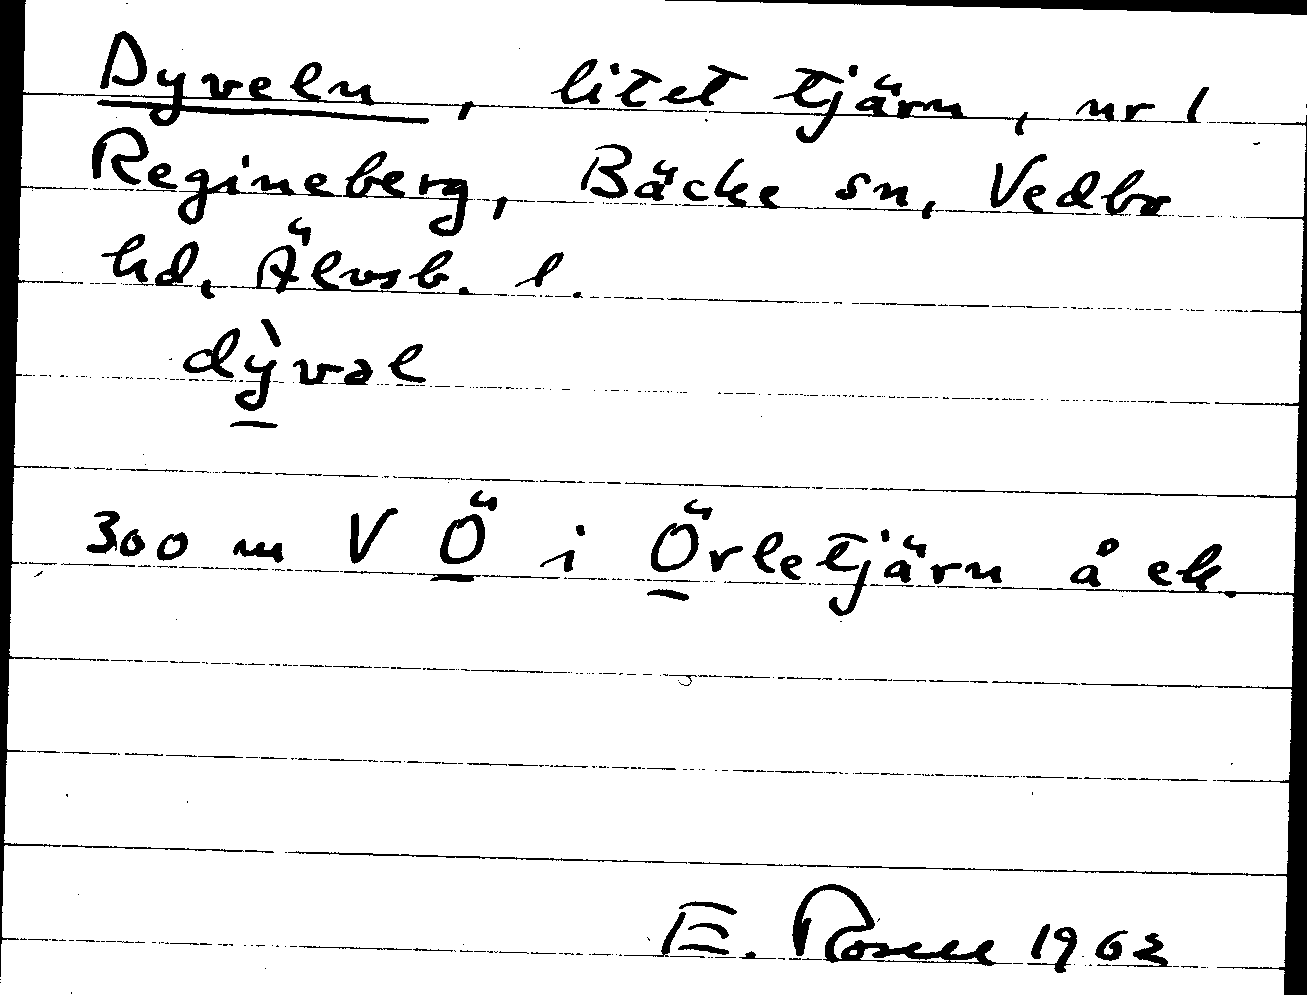 Dyveln, litet tjärn, nr 1
Regineberg, Bäcke sn, Vedbo
hd, Älvsb. l.
dỳvəl
300 m V Ö i Örletjärn å ek.
E. Rosell 1962